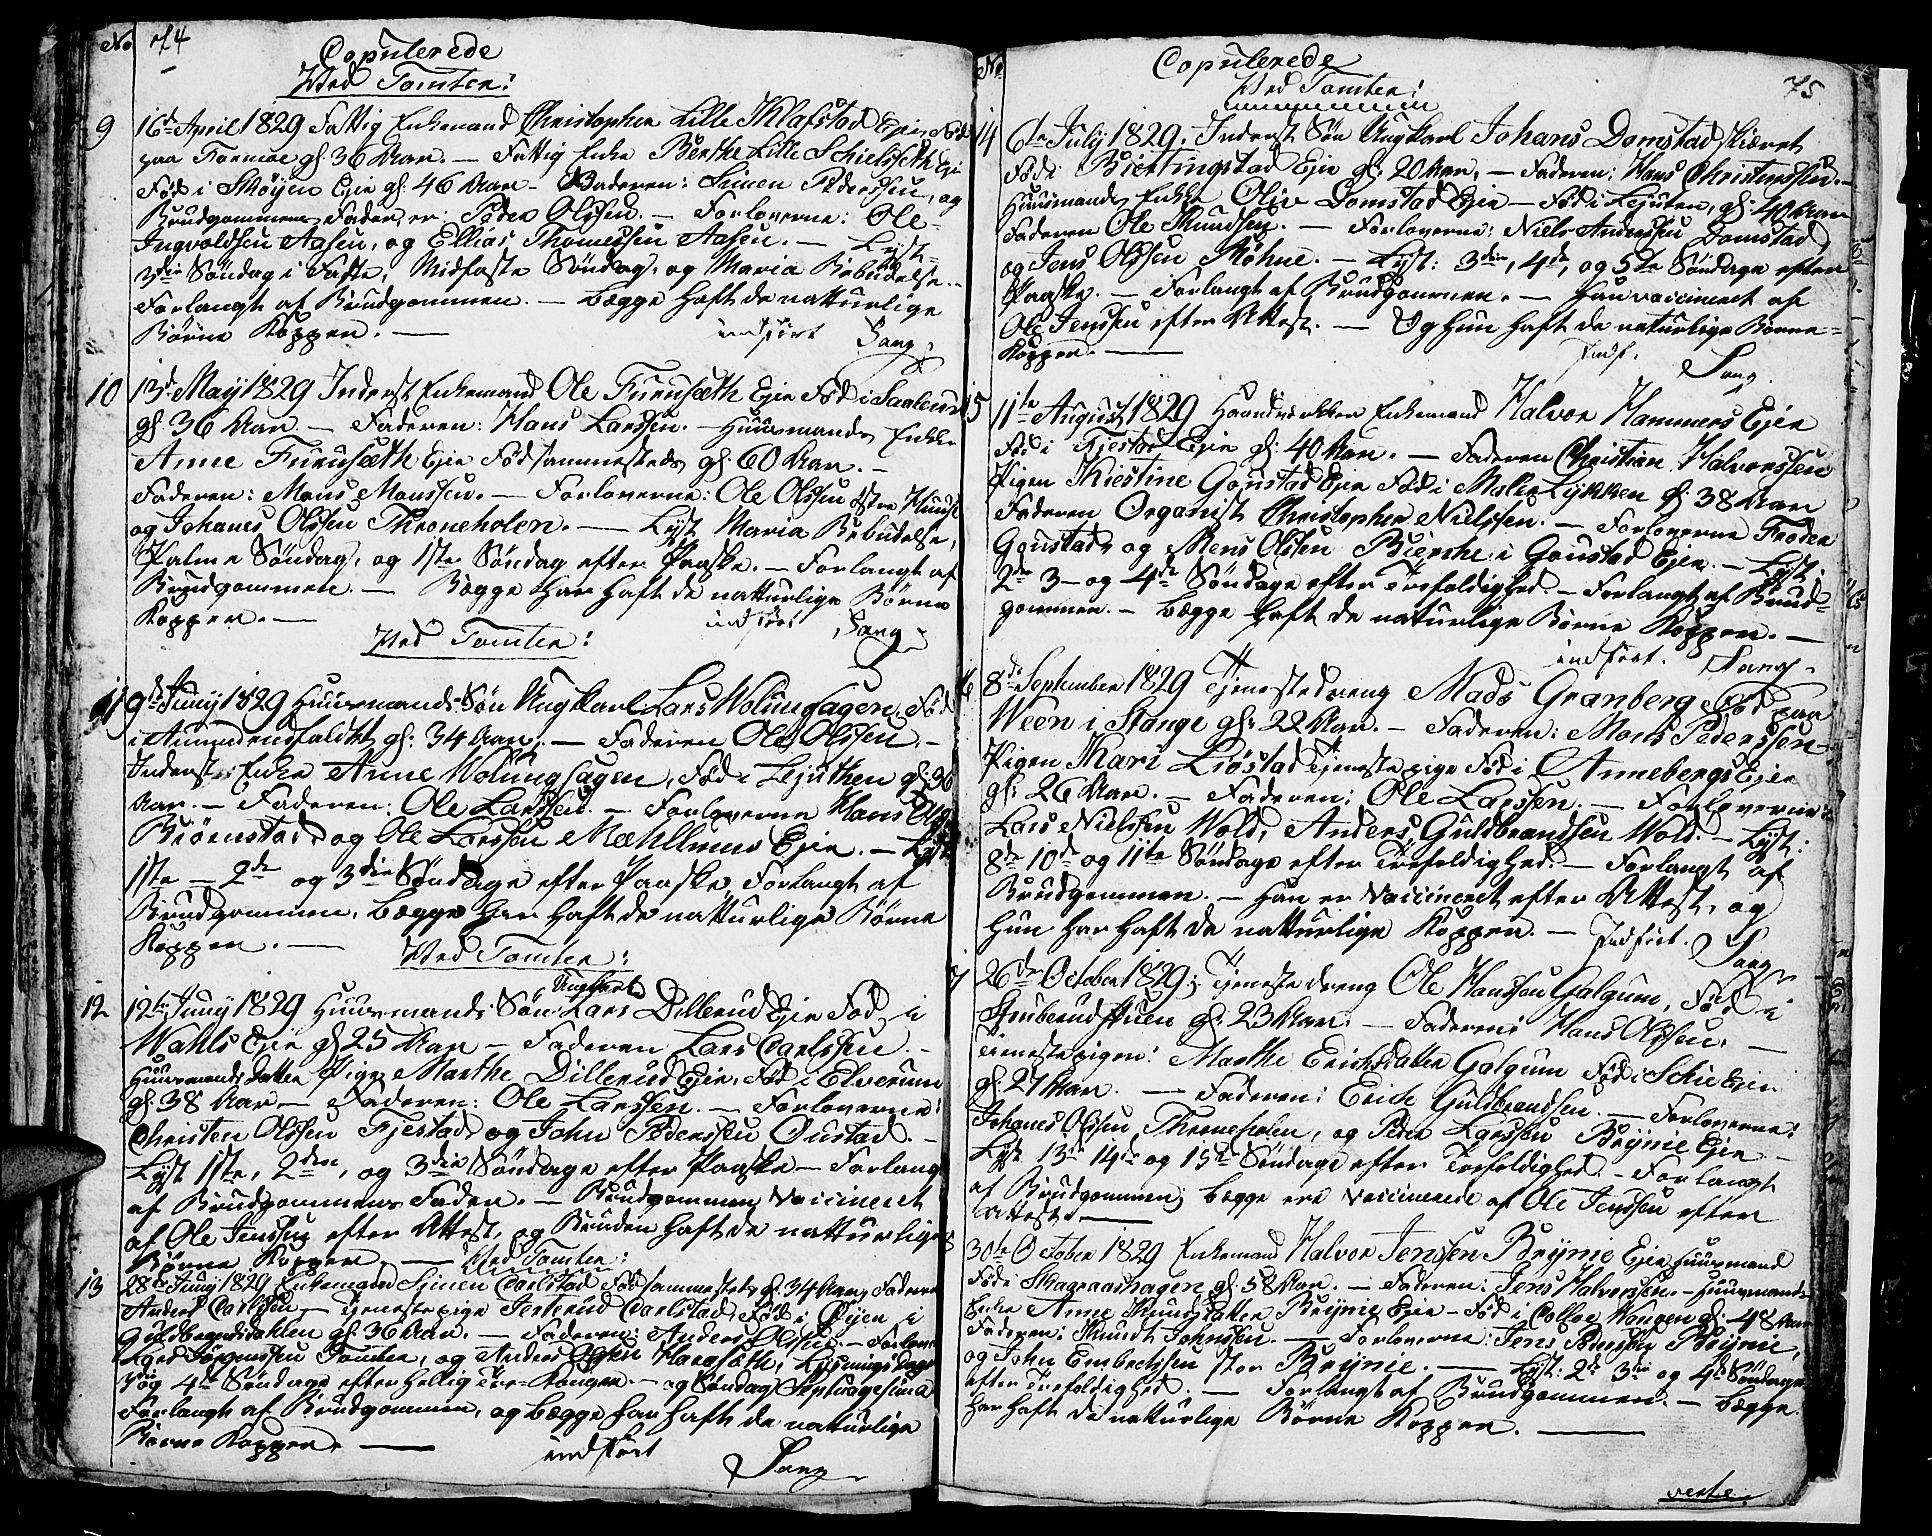 No 74
Copulerede
Ved Tomten:
9 16de April 1829 Fattig Enkemand Christopher Lille Klafstad Eje, Fød
paa Formoe gl: 36 Aar. — Fattig Enke Berthe Lille Schielseth Eje
Fød i Skøyen Eje gl: 46 Aar — Faderen: Simen Pederssen, og
Brudgommens Fader, er: Peder Olssen. — Forloverne: Ole
Ingvoldsen Aasen, og Ellias Thomessen Aasen. — Lyst
3die Søndag i Faste, Midfaste Søndag, og Maria Bebudelse.
Forlangt af Brudgommen. — Begge haft de natturlige
Børne Kopper. — indført Sang.
10 13de May 1829 Inderst Enkemand Ole Furuseth Eje Fød i Saalerud
gl: 36 Aar. — Faderen: Hans Larssen. — Huusmands Enke
Anne Furuseth Eje Fød sammesteds gl: 60 Aar. —
Faderen: Mons Monssen. — Forloverne: Ole Olssen
og Johanes Olssen Throneholen. — Lyst Maria Bebudelse,
Palme Søndag, og 1ste Søndag efter Paaske. — Forlangt af
Brudgommen. — Begge har haft de natturlige Børne
Kopper. — indført Sang.
Ved Tomten:
11 9de Juny 1829 Huusmands Søn Ungkarl Lars Wolungsagen, Fød
i gl: 34 Aar. — Faderen Ole Olssen. —
Inderst: Enke Anne Wolungsagen, Fød i Lejuthen gl: 30
Aar. — Faderen: Ole Larssen. — Forloverne Hans
Biørnstad, og Ole Larssen Mæhllmus Eje. — Lyst
1ste — 2de og 3die Søndage efter Paaske Forlangt af
Brudgommen, begge har haft de natturlige Børne
Kopper. —
Ved Tomten:
12 12te Juny 1829 Huusmands Søn Ungkarl Lars Dillerud Eje Fød i
Wahls Eje gl 25 Aar — Faderen Lars Carlssen. —
Huusmands Datter Pige Marthe Dillerud Eje, Fød i Elverum
gl: 38 Aar — Faderen: Ole Larssen. — Forloverne:
Christen Olssen Fjestad, og John Pederssen Oustad. —
Lyst 1ste, 2den, og 3die Søndage efter Paaske — Forlangt
af Brudgommens Fader. — Brudgommen Vaccineret
af Ole Jenssen efter Attest, og Bruden haft de natturlige
Børne Kopper —
Ved Tomten:
13 28de Juny 1829 Enkemand Simen Carlstad Fød sammesteds gl: 34 Aar, Faderen
Anders Carlssen, — Tjenestepige Carlstad, Fød i Øyen i
Guldbrandsdahlen gl: 36 Aar. — Faderen: Anders Olssen — Forlover
Lars Tomten, og Anders Olssen Harasæth, Lysnings Dage
3die og 4de Søndage efter Hellig Tre-Konger — og Søndag Septuagesima
Forlangt af Brudgommen, og begge har haft de natturlige
Børne Kopper. — indført
Sang
No 75
Copulerede
Ved Tomten:
14 6te July 1829. Inderst Søn Ungkarl Johans Domstad
Fød i Biertingstad Eje gl: 20 Aar, — Faderen: Hans Christenssen. —
Huusmands Enke Olive Domstad Eje — Fød i Lejuten, gl: 40 Aar
Faderen Ole Knudsen. — Forloverne: Niels Anderssen Domstad,
og Jens Olssen Møhne. — Lyst: 3die, 4de, og 5te Søndage efter
Paaske. — Forlangt af Brudgommen. — Han vaccineret af
Ole Jenssen efter Attest. — Og hun haft de naturlige Børne
Kopper. — Indf. Sang.
15 11te August 1829 Haandværker Enkemand Halvor Hammers Eje
Fød i Fjestad Eje gl: 40 Aar. — Faderen Christian Halvorssen
Pigen Kiestine Goustad Eje Fød i Møller Løkken gl: 38 Aar
Faderen Organist Christopher Nielssen. — Forloverne Froder
Goustad, og Mens Olsen Bierke i Goustad Eje. — Lyst.
2de 3— og 4de Søndage efter Trefoldighed. — Forlangt af Brud-
gommen. — begge haft de naturlige Børne Kopper. —
indført. Sang.
16 8de September 1829 Tjenestedreng Mads Granberg Fød paa
Ween i Stange gl: 22 Aar. — Faderen: Mons Pederssen
Pigen Mari Liøstad Tjenestepige Fød i Annebergs Eje
gl: 26 Aar. — Faderen: Ole Larssen. — Forloverne:
Lars Nielssen Wold, Anders Guldbrandsen Wold. — Lyst:
8de 10de og 11te Søndage efter Trefoldighed. — Forlangt af
Brudgommen. — Han er Vaccineret efter Attest, og
Hun har haft de natturlige Kopper. — Indført. Sang
17 26de October 1829; Tjeneste dreng Ole Hanssen Galgum, Fød i
Stubberudstuen gl: 23 Aar. — Faderen: Hans Olssen. —
Tjenestepigen: Marthe Erichsdatter Galgum Fød i Schie Eje
gl: 27 Aar. — Faderen: Erich Guldbrandsen. — Forloverne:
Johanes Olssen Throneholen, og Peder Larssen Brynie Eje —
Lyst 13de 14de og 15de Søndage efter Trefoldighed. — Forlangt
af Brudgommen; begge ere vaccinerede af Ole Jenssen efter
Attest. —
30te October 1829 Enkemand Halvor Jenssen Brynie Eje Huusmand
Fød i Skagraashagen gl: 58 Aar. — Faderen: Jens Halvorssen. — Huusmands
Enke Anne Knudsdatter Brynie Eje — Fød i Colloe Wangen gl: 48 Aar
Faderen: Knudt Johnssen. — Forloverne: Jens Pederssen Brynie,
og John Embretssen stor Brynie. — Lyst: 2de 3die og 4de Søndage
efter Trefoldighed. — Forlangt af Brudgommen. — begge
har haft de natturlige Børne Kopper. —
verte.